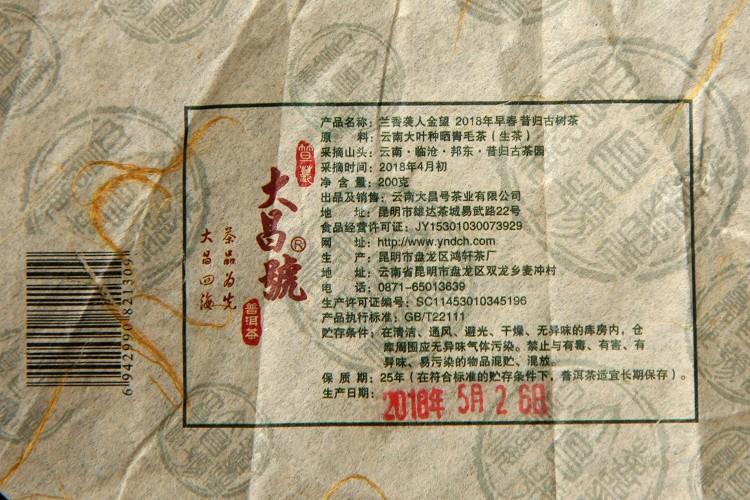 产品名称：兰香袭人金望 2018年早春昔归古树茶
原　　料：云南大叶种晒青毛茶（生茶）
采摘山头：云南·临沧·邦东·昔归古茶园
采摘时间：2018年4月初
净 含 量：200克
出品及销售：云南大昌号茶业有限公司
地　　址：昆明市雄达茶城易武路22号
食品经营许可证：JY15301030073929
网　　址：http://www.yndch.com
生　　产：昆明市盘龙区鸿轩茶厂
地　　址：云南省昆明市盘龙区双龙乡麦冲村
电　　话：0871-65013639
生产许可证编号：SC11453010345196
产品执行标准：GB/T22111
贮存条件：在清洁、通风、避光、干燥、无异味的库房内，仓
库周围应无异味气体污染。禁止与有毒、有害、有
异味、易污染的物品混贮、混放。
保 质 期：25年（在符合标准的贮存条件下，普洱茶适宜长期保存）。
生产日期：
2018年 5月 2 6日
大昌號
®
茶品为先
大昌四海
普洱茶
6 942990 821309